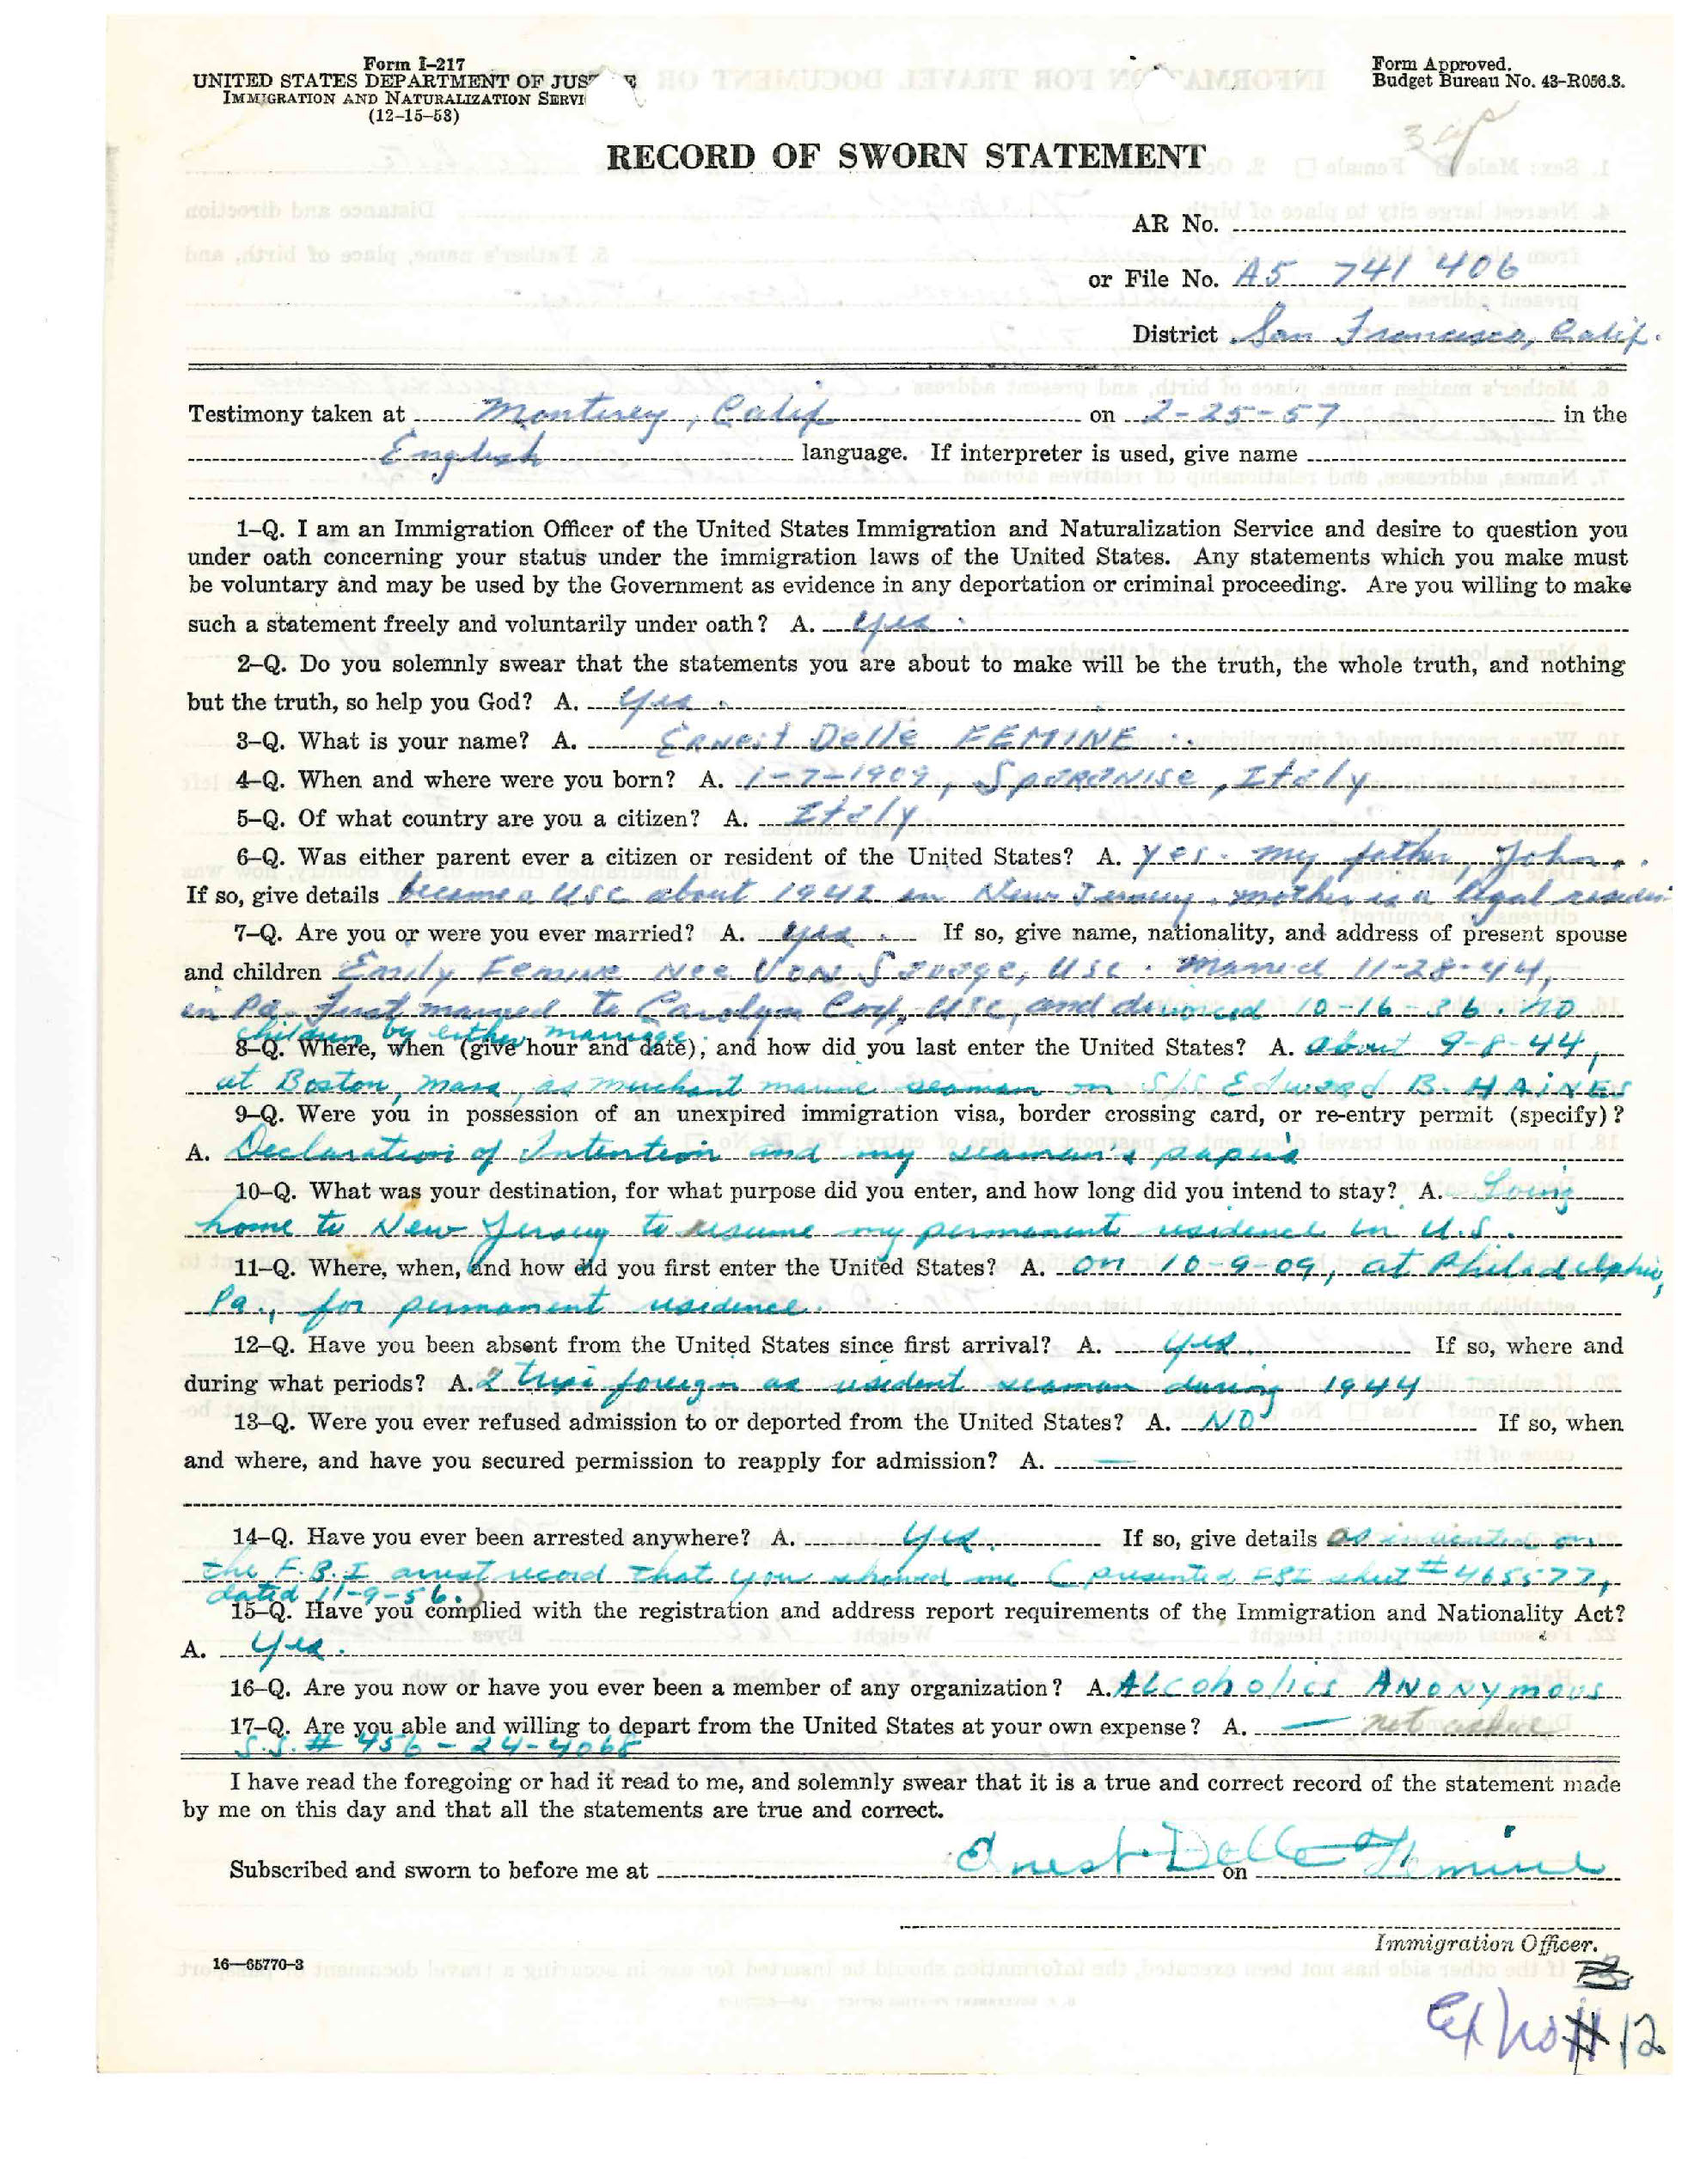 Form I-217
UNITED STATES DEPARTMENT OF JUS
IMMIGRATION AND NATURALIZATION SERVI
(12-15-53)
Form Approved.
Budget Bureau No. 43-R056.3.
RECORD OF SWORN STATEMENT
AR No.
or File No. A5 741 406
District San Francisco, Calif.
Testimony taken at Monterey, Calif on 2-25-57 in the
English language. If interpreter is used, give name
1-Q. I am an Immigration Officer of the United States Immigration and Naturalization Service and desire to question you
under oath concerning your status under the immigration laws of the United States. Any statements which you make must
be voluntary and may be used by the Government as evidence in any deportation or criminal proceeding. Are you willing to make
such a statement freely and voluntarily under oath? A. Yes.
2-Q. Do you solemnly swear that the statements you are about to make will be the truth, the whole truth, and nothing
but the truth, so help you God? A. Yes.
3-Q. What is your name? A. Ernest Delle FEMINE
4-Q. When and where were you born? A. 1-7-1909, Italy
5-Q. Of what country are you a citizen? A. Italy
6-Q. Was either parent ever a citizen or resident of the United States? A. Yes. my father, John,
If so, give details became a USC about 1942 in New Jersey. mother is a legal resident
7-Q. Are you or were you ever married? A. Yes. If so, give name, nationality, and address of present spouse
and children Emily Femine Nee Von USC. Married 11-28-44,
in Pa. First married to Carolyn Cox, USC, and divorced 10-16-36. NO
children by either marriage.
8-Q. Where, when (give hour and date), and how did you last enter the United States? A. about 9-8-44,
at Boston, Mass, as merchant marine seaman on S/S Edward B. HAINES
9-Q. Were you in possession of an unexpired immigration visa, border crossing card, or re-entry permit (specify)?
A. Declaration of Intention and my seaman's papers
10-Q. What was your destination, for what purpose did you enter, and how long did you intend to stay? A. Going
home to New Jersey to resume my permanent residence in U.S.
11-Q. Where, when, and how did you first enter the United States? A. on 10-9-09, at Philadelphia,
Pa., for permanent residence.
12-Q. Have you been absent from the United States since first arrival? A. Yes If so, where and
during what periods? A. 2 trips foreign as resident seaman during 1944
13-Q. Were you ever refused admission to or deported from the United States? A. NO If so, when
and where, and have you secured permission to reapply for admission? A. —
14-Q. Have you ever been arrested anywhere? A. Yes. If so, give details as indicated on
the F.B.I arrest record that you showed me (presented FBI sheet # 465577,
dated 11-9-56.)
15-Q. Have you complied with the registration and address report requirements of the Immigration and Nationality Act?
A. Yes.
16-Q. Are you now or have you ever been a member of any organization? A. ALcoholics ANONymous
17-Q. Are you able and willing to depart from the United States at your own expense? A. — not asked
S.S. # 456-24-4068
I have read the foregoing or had it read to me, and solemnly swear that it is a true and correct record of the statement made
by me on this day and that all the statements are true and correct.
Ernest Delle Femine
Subscribed and sworn to before me at on
Immigration Officer.
16—65770-3
# 12